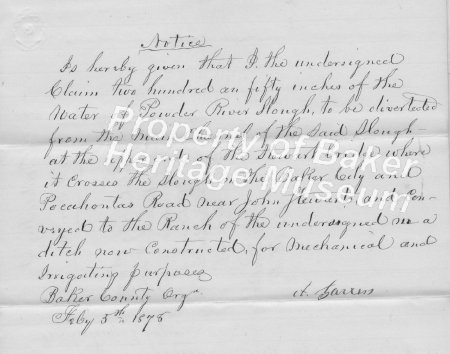 Notice
Is hereby given that I. the undersigned
Claim two hundred an fifty inches of the
Water of Powder River Slough, to be diverted
from the main channel of the said Slough
at the of the where
it Crosses the Slough on the Baker City and
Pocahontas Road near John Stewarts and Con-
veyed to the Ranch of the undersigned in a
ditch now Constructed, for Mechanical and
Irrigating purposes
Baker County Orgn
Feby 5th 1878
Property of Baker
Heritage Museum